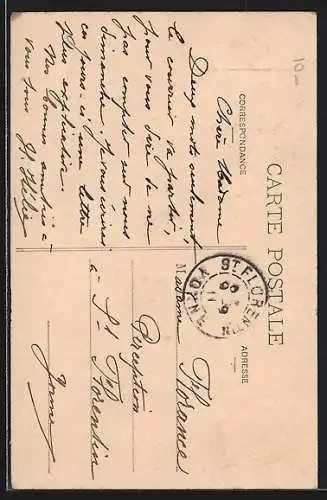 CARTE POSTALE
CORRESPONDANCE
ADRESSE
Chère Madame
Deux mots seulement,
le courrier va partir,
pour vous dire de ne
pas compter sur nous
dimanche. Je vous écrirai
ces jours-ci une lettre
plus explicative.
Nos bonnes amitiés à
vous tous
Madame
Perception
à St Florentin
Yonne
ST FLORENTIN
YONNE
10-